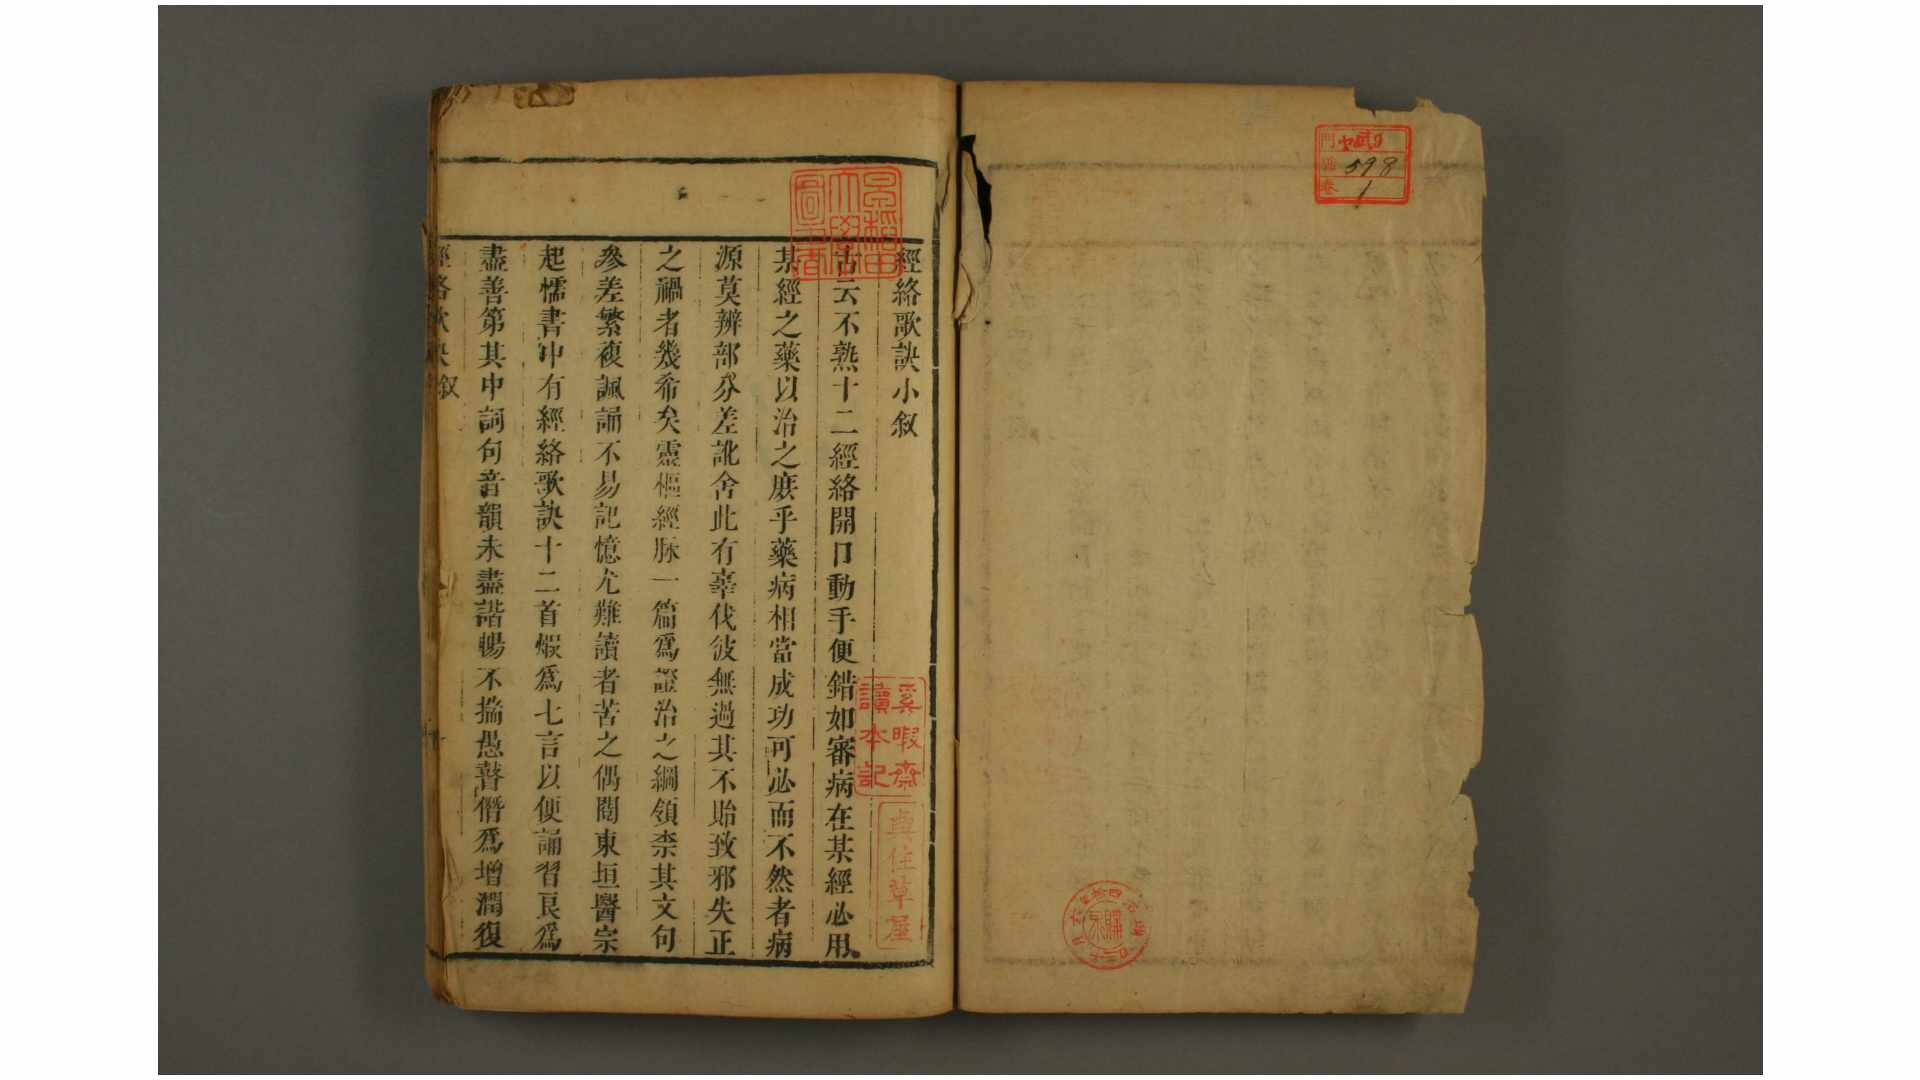 門
號 598
卷 1
經絡歌訣小叙
古云不熟十二經絡開口動手便錯如審病在某經必用
某經之藥以治之庶乎藥病相當成功可必而不然者病
源莫辨部分差訛舍此有辜伐彼無過其不貽致邪失正
之禍者幾希矣靈樞經脉一篇爲證治之綱領柰其文句
參差繁複諷誦不易記憶尤難讀者苦之偶閱東垣醫宗
起懦書中有經絡歌訣十二首煆爲七言以便誦習良爲
盡善第其中詞句音韻未盡諧暢不揣愚瞽僭爲增潤復
經絡歌訣叙
早稻田
大學
圖書
奚暇齋
讀本記
草屋
購求